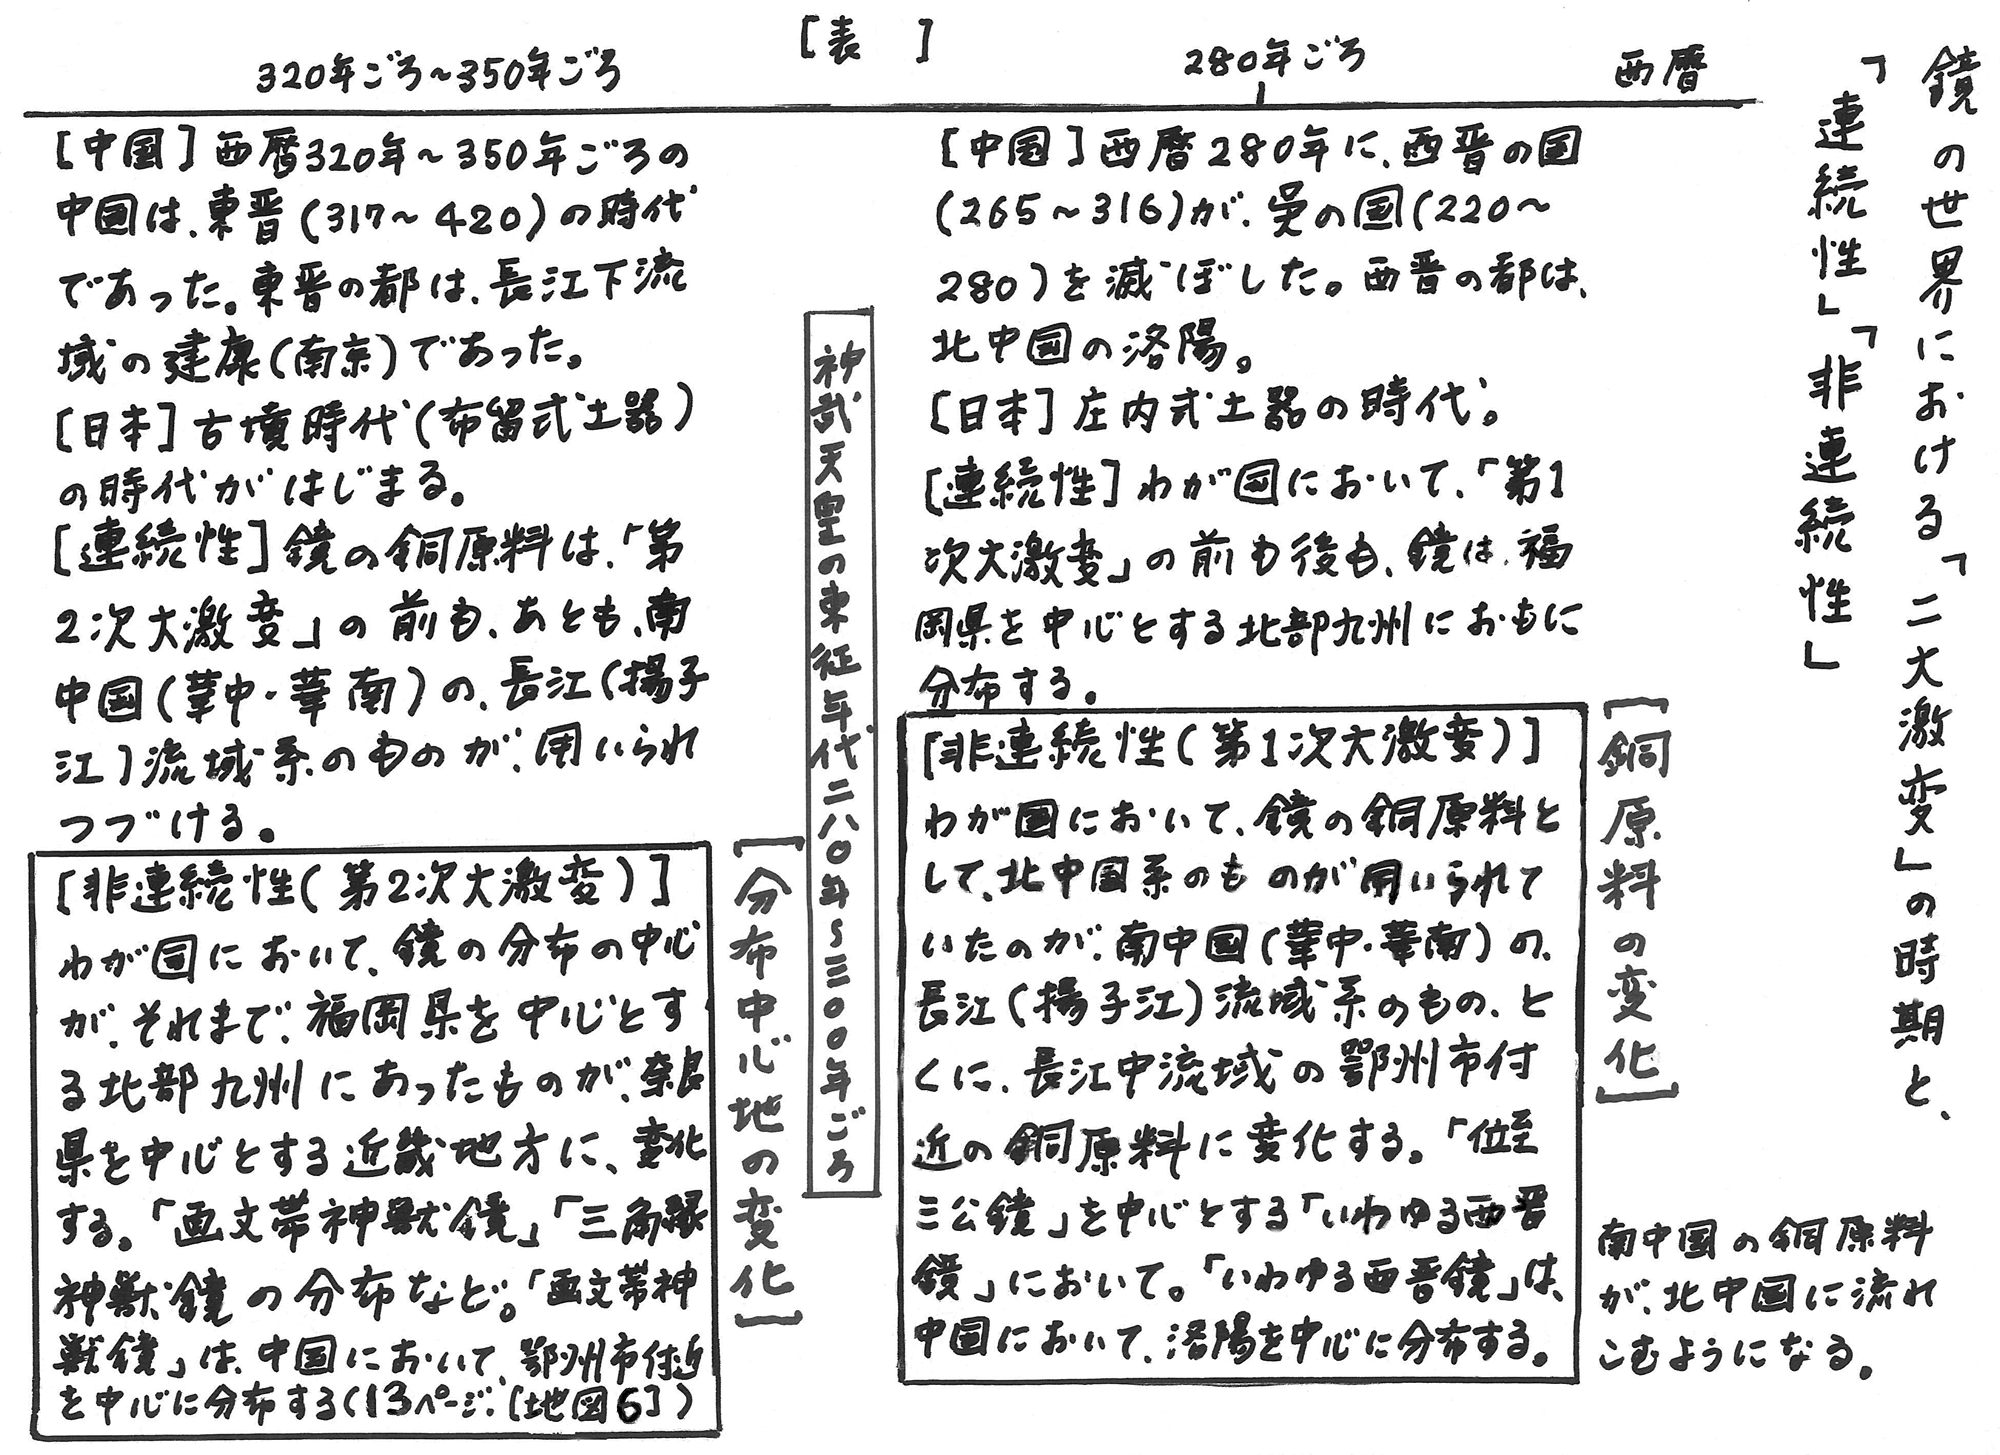 鏡の世界における「二大激変」の時期と、
「連続性」「非連続性」
[表　]
西暦
280年ごろ
320年ごろ～350年ごろ
[中国]西暦280年に、西晋の国
(265～316)が、呉の国(220～
280)を滅ぼした。西晋の都は、
北中国の洛陽。
[日本]庄内式土器の時代。
[連続性]わが国において、「第1
次大激変」の前も後も、鏡は、福
岡県を中心とする北部九州におもに
分布する。
[非連続性(第1次大激変)]
わが国において、鏡の銅原料と
して、北中国系のものが用いられて
いたのが、南中国(華中・華南)の、
長江(揚子江)流域系のもの、と
くに、長江中流域の鄂州市付
近の銅原料に変化する。「位至
三公鏡」を中心とする「いわゆる西晋
鏡」において。「いわゆる西晋鏡」は、
中国において、洛陽を中心に分布する。
[銅原料の変化]
南中国の銅原料
が、北中国に流れ
こむようになる。
神武天皇の東征年代二八〇年～三〇〇年ごろ
[中国]西暦320年～350年ごろの
中国は、東晋(317～420)の時代
であった。東晋の都は、長江下流
域の建康(南京)であった。
[日本]古墳時代(布留式土器)
の時代がはじまる。
[連続性]鏡の銅原料は、「第
2次大激変」の前も、あとも、南
中国(華中・華南)の、長江(揚子
江)流域系のものが、用いられ
つづける。
[非連続性(第2次大激変)]
わが国において、鏡の分布の中心
が、それまで、福岡県を中心とす
る北部九州にあったものが、奈良
県を中心とする近畿地方に、変化
する。「画文帯神獣鏡」「三角縁
神獣鏡の分布など。「画文帯神
獣鏡」は、中国において、鄂州市付近
を中心に分布する(13ページ、[地図6])
[分布中心地の変化]